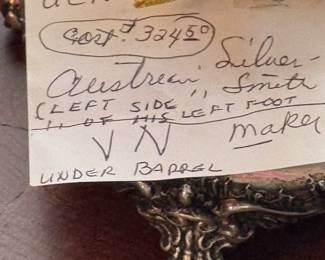 Cost $ 324 50
Austrean Silver-
Smith
(LEFT SIDE
" OF HIS LEFT FOOT
V N Maker
UNDER BARREL